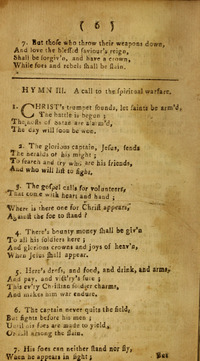 ( 6 )
7. But those who throw their weapons down,
And love the blessed saviour's reign,
Shall be forgiv'n, and have a crown,
While foes and rebels shall be slain.
HYMN III. A call to the spiritual warfare.
1. CHRIST's trumpet sounds, let saints be arm'd,
The battle is begun ;
The hosts of satan are alarm'd,
The day will soon be won.
2. The glorious captain, Jesus, sends
The heralds of his might ;
To search and try who are his friends,
And who will list to fight.
3. The gospel calls for volunteers,
That come with heart and hand ;
Where is there one for Christ appears,
Against the foe to stand ?
4. There's bounty money shall be giv'n
To all his soldiers here ;
And glorious crowns and joys of heav'n,
When Jesus shall appear.
5. Here's dress, and food, and drink, and arms,
And pay, and vict'ry sure ;
This ev'ry Christian soldier charms,
And makes him war endure.
6. The captain never quits the field,
But fights before his men ;
Until his foes are made to yield,
Or fall among the slain.
7. His foes can neither stand nor fly,
When he appears in sight ;
But